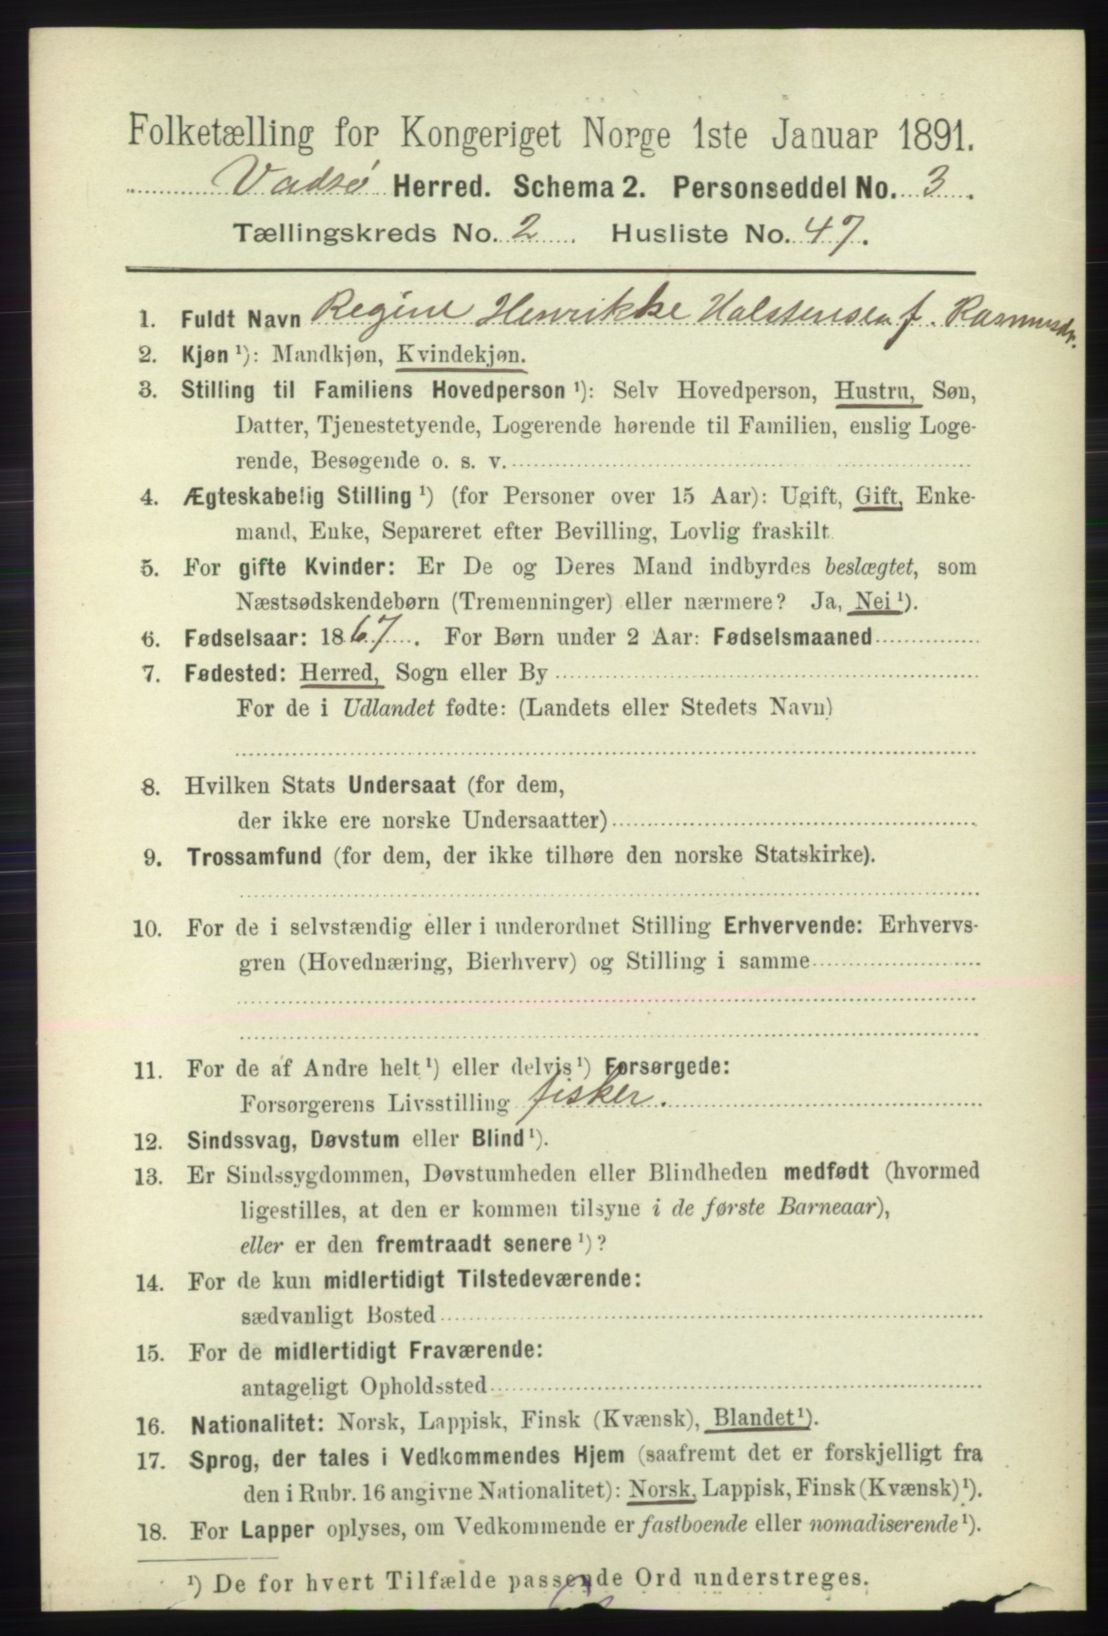 Folketælling for Kongeriget Norge 1ste Januar 1891.
Vadsø Herred. Schema 2. Personseddel No. 3.
Tællingskreds No. 2. Husliste No. 47.
1. Fuldt Navn Regine Henrikke Halstensen f. Rasmusdr.
2. Kjøn ¹): Mandkjøn, Kvindekjøn.
3. Stilling til Familiens Hovedperson ¹): Selv Hovedperson, Hustru, Søn,
Datter, Tjenestetyende, Logerende hørende til Familien, enslig Loge-
rende, Besøgende o. s. v.
4. Ægteskabelig Stilling ¹) (for Personer over 15 Aar): Ugift, Gift, Enke-
mand, Enke, Separeret efter Bevilling, Lovlig fraskilt.
5. For gifte Kvinder: Er De og Deres Mand indbyrdes beslægtet, som
Næstsødskendebørn (Tremenninger) eller nærmere? Ja, Nei ¹).
6. Fødselsaar: 1867. For Børn under 2 Aar: Fødselsmaaned
7. Fødested: Herred, Sogn eller By
For de i Udlandet fødte: (Landets eller Stedets Navn)
8. Hvilken Stats Undersaat (for dem,
der ikke ere norske Undersaatter)
9. Trossamfund (for dem, der ikke tilhøre den norske Statskirke).
10. For de i selvstændig eller i underordnet Stilling Erhvervende: Erhvervs-
gren (Hovednæring, Bierhverv) og Stilling i samme
11. For de af Andre helt ¹) eller delvis ¹) Forsørgede:
Forsørgerens Livsstilling fisker.
12. Sindssvag, Døvstum eller Blind ¹).
13. Er Sindssygdommen, Døvstumheden eller Blindheden medfødt (hvormed
ligestilles, at den er kommen tilsyne i de første Barneaar),
eller er den fremtraadt senere ¹)?
14. For de kun midlertidigt Tilstedeværende:
sædvanligt Bosted
15. For de midlertidigt Fraværende:
antageligt Opholdssted
16. Nationalitet: Norsk, Lappisk, Finsk (Kvænsk), Blandet ¹).
17. Sprog, der tales i Vedkommendes Hjem (saafremt det er forskjelligt fra
den i Rubr. 16 angivne Nationalitet): Norsk, Lappisk, Finsk (Kvænsk) ¹).
18. For Lapper oplyses, om Vedkommende er fastboende eller nomadiserende ¹).
¹) De for hvert Tilfælde passende Ord understreges.